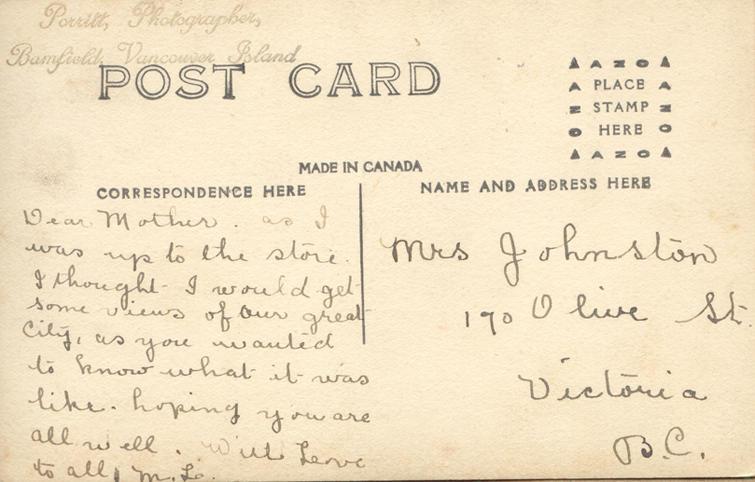 Porritt, Photographer,
Bamfield, Vancouver Island
POST CARD
AZO
PLACE
STAMP
HERE
AZO
MADE IN CANADA
CORRESPONDENCE HERE
NAME AND ADDRESS HERE
Dear Mother. as I
was up to the store.
I thought I would get
some views of our great
City, as you wanted
to know what it was
like. hoping you are
all well. With Love
to all, M. L.
Mrs Johnston
170 Olive St.
Victoria
B.C.